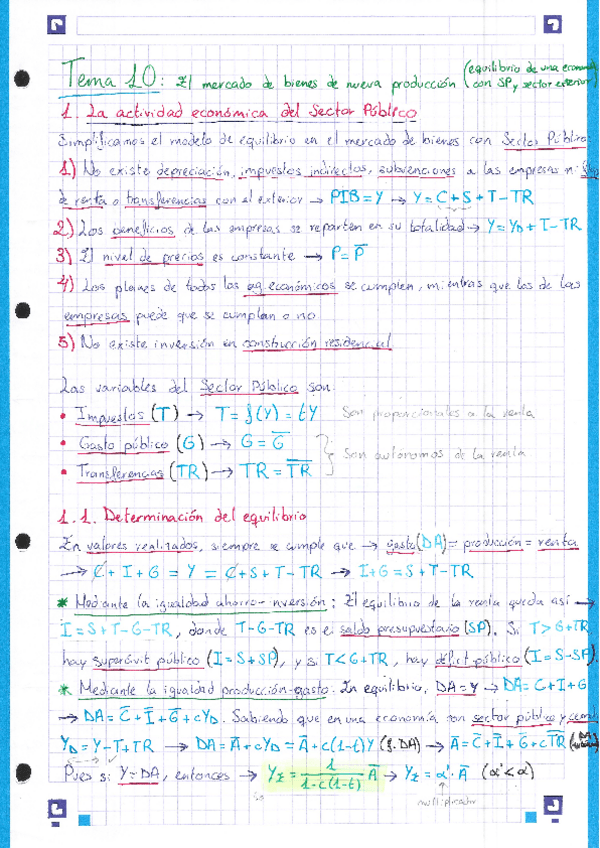 Tema 10: El mercado de bienes de nueva producción (equilibrio de una economía
con SP y sector exterior)
1. La actividad económica del Sector Público
Simplificamos el modelo de equilibrio en el mercado de bienes con Sector Público:
1) No existe depreciación, impuestos indirectos, subvenciones a las empresas ni
de renta o transferencias con el exterior → PIB = Y → Y = C + S + T - TR
2) Los beneficios de las empresas se reparten en su totalidad → Y = YD + T - TR
3) El nivel de precios es constante → P = P̅
4) Los planes de todos los ag. económicos se cumplen, mientras que los de las
empresas puede que se cumplan o no
5) No existe inversión en construcción residencial
Las variables del Sector Público son:
• Impuestos (T) → T = f(Y) = tY Son proporcionales a la renta
• Gasto público (G) → G = G̅
Son autónomos de la renta
• Transferencias (TR) → TR = T̅R̅
1.1. Determinación del equilibrio
En valores realizados, siempre se cumple que → gasto (DA) = producción = renta
→ C + I + G = Y = C + S + T - TR → I + G = S + T - TR
* Mediante la igualdad ahorro-inversión: El equilibrio de la renta queda así →
I = S + T - G - TR, donde T - G - TR es el saldo presupuestario (SP). Si T > G + TR
hay superávit público (I = S + SP), y si T < G + TR, hay déficit público (I = S - SP).
* Mediante la igualdad producción-gasto: En equilibrio, DA = Y → DA = C + I + G
→ DA = C̅ + I̅ + G̅ + cYD. Sabiendo que en una economía con sector público y
YD = Y - T + TR → DA = A̅ + cYD = A̅ + c(1-t)Y (f. DA) → A̅ = C̅ + I̅ + G̅ + cT̅R̅
Pues si Y = DA, entonces → YE = 1 / 1-c(1-t) A̅ → YE = α'·A̅ (α' < α)
multiplicador